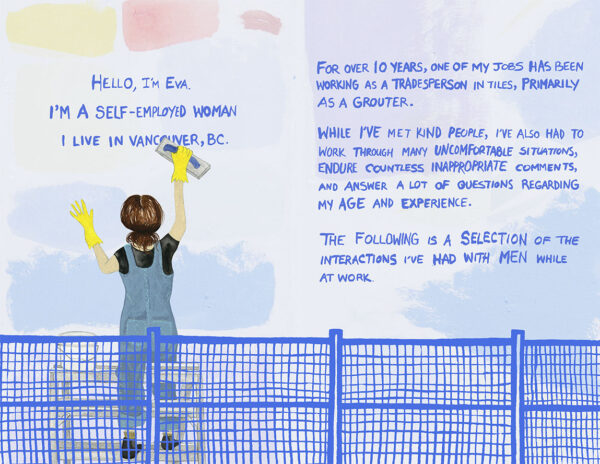 HELLO, I'M EVA.
I'M A SELF-EMPLOYED WOMAN
I LIVE IN VANCOUVER, BC.
FOR OVER 10 YEARS, ONE OF MY JOBS HAS BEEN
WORKING AS A TRADESPERSON IN TILES, PRIMARILY
AS A GROUTER.
WHILE I'VE MET KIND PEOPLE, I'VE ALSO HAD TO
WORK THROUGH MANY UNCOMFORTABLE SITUATIONS,
ENDURE COUNTLESS INAPPROPRIATE COMMENTS,
AND ANSWER A LOT OF QUESTIONS REGARDING
MY AGE AND EXPERIENCE.
THE FOLLOWING IS A SELECTION OF THE
INTERACTIONS I'VE HAD WITH MEN WHILE
AT WORK.